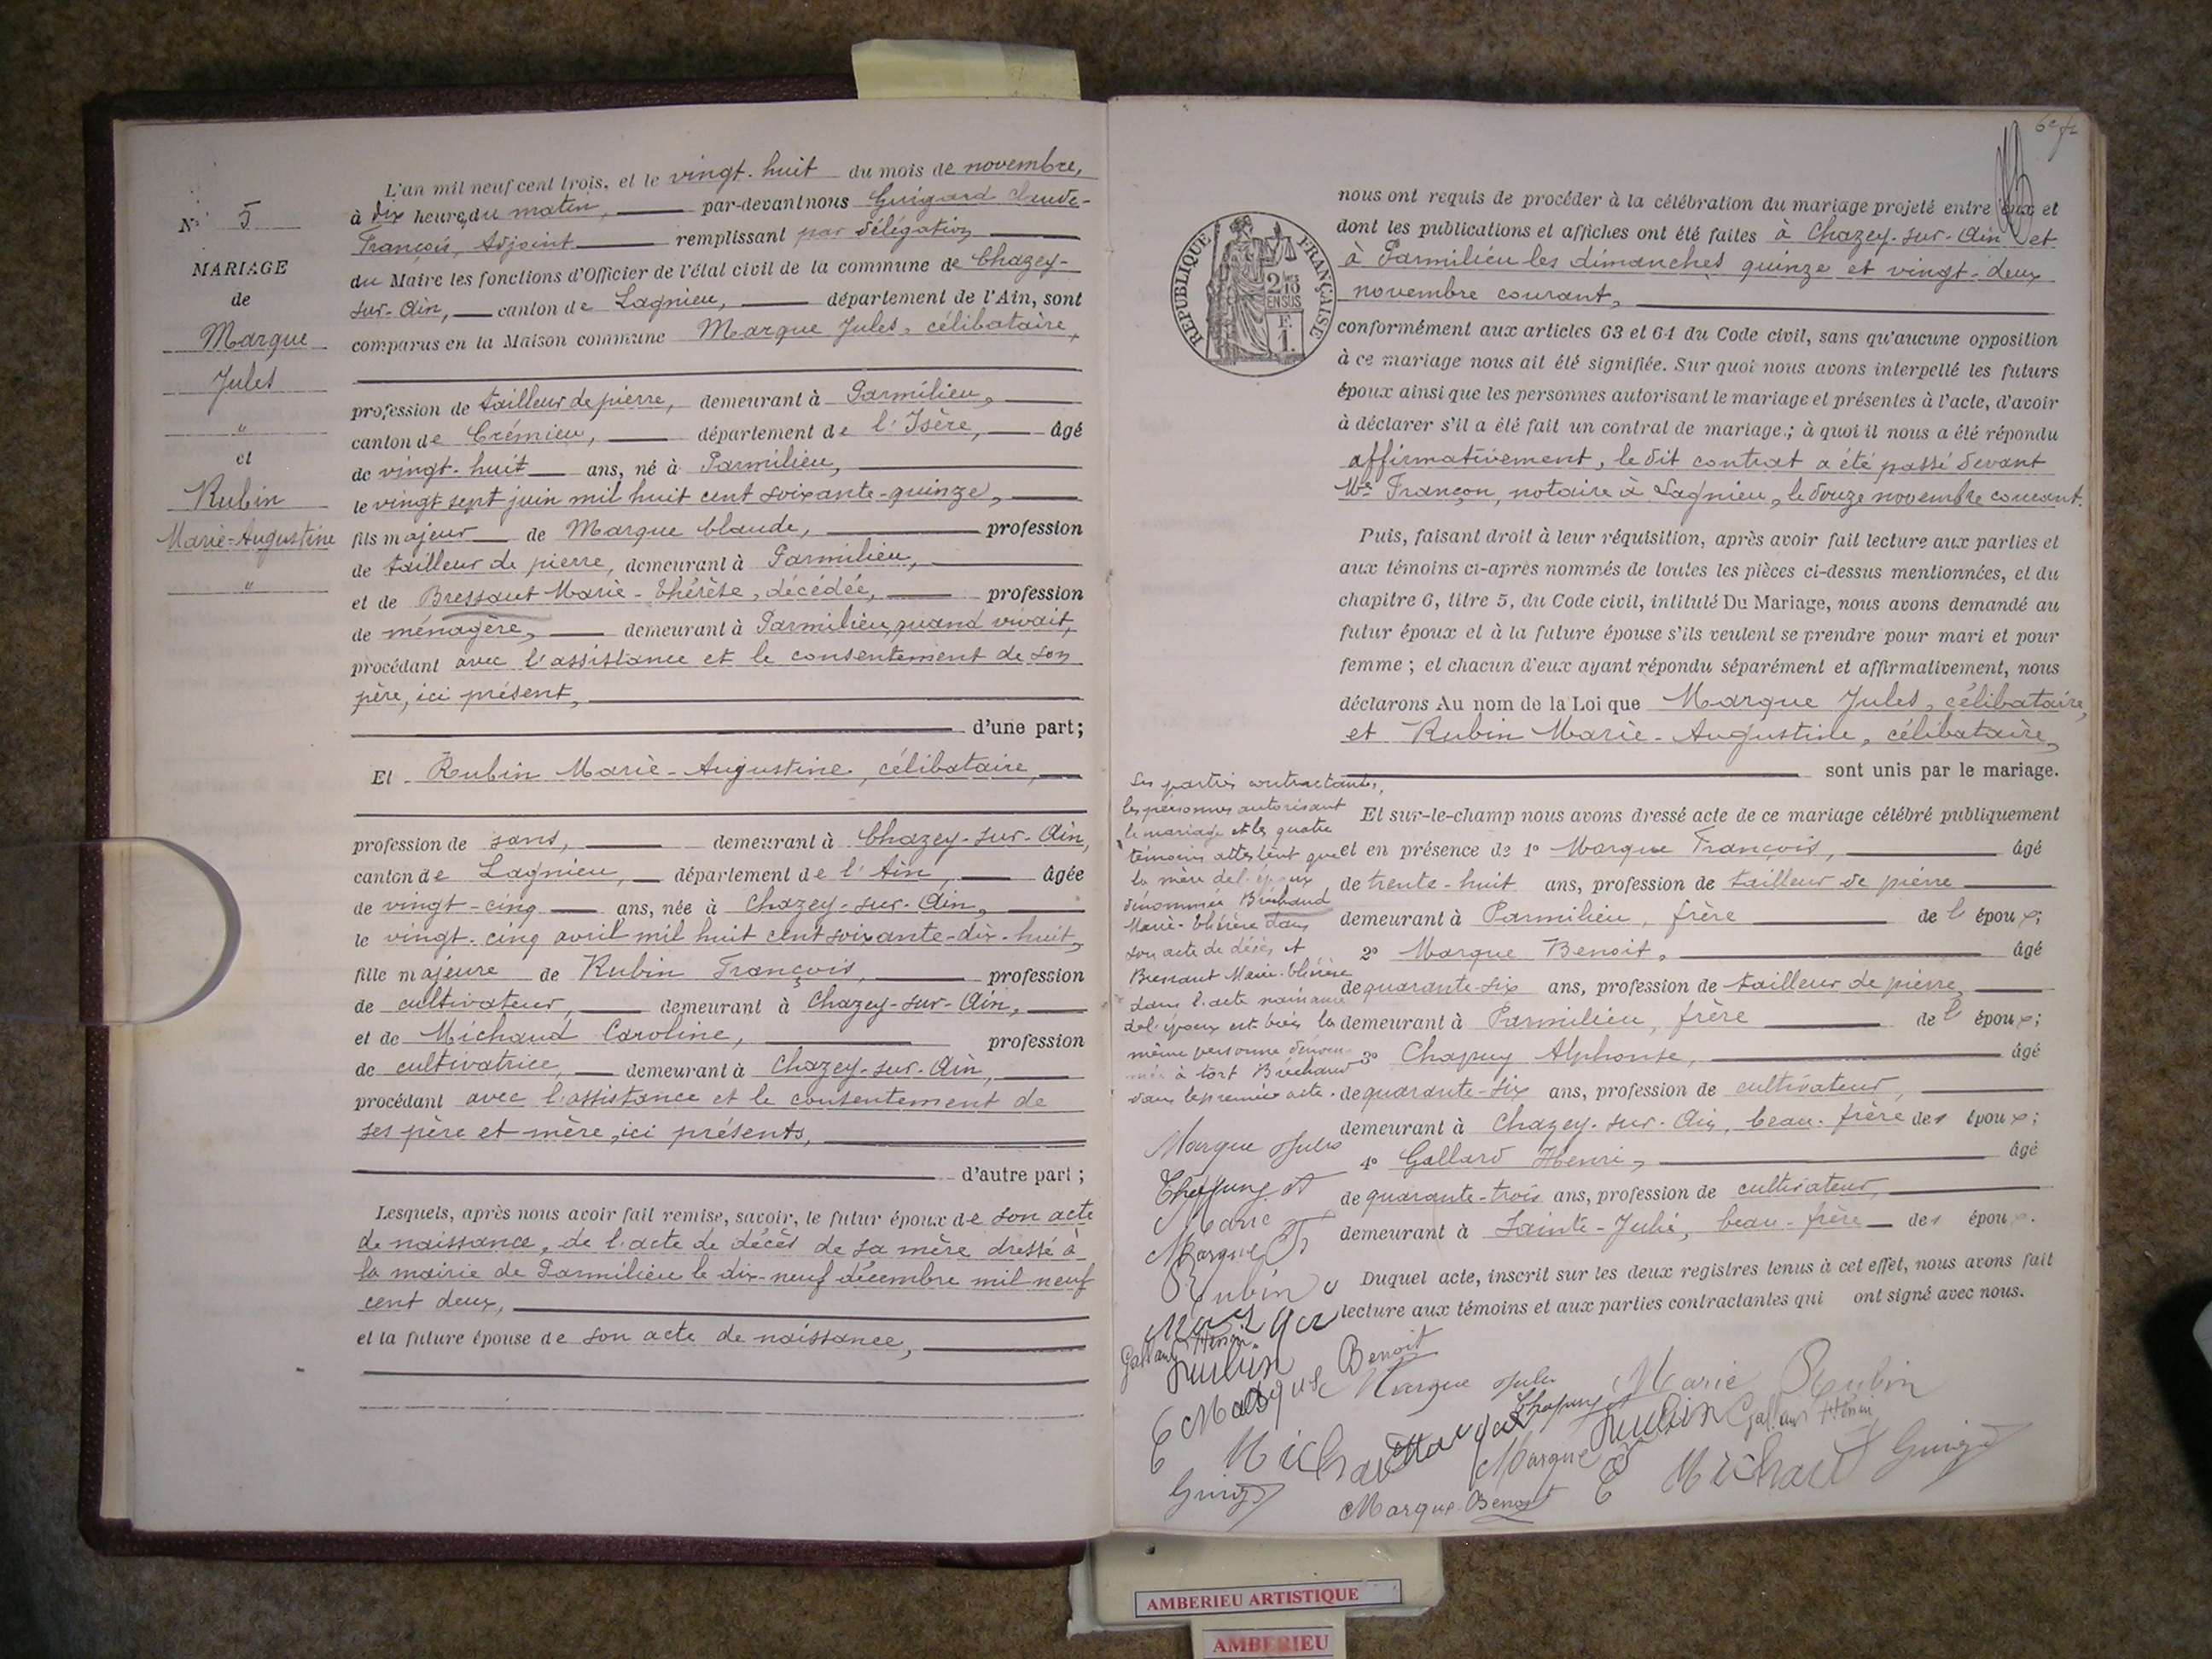 N° 5
MARIAGE
de
Marque
Jules
"
et
Rubin
Marie-Augustine
"
L'an mil neuf cent trois, et le vingt-huit du mois de novembre,
à dix heures du matin, par-devant nous Guigard Claude-
François, Adjoint remplissant par délégation
du Maire les fonctions d'Officier de l'état civil de la commune de Chazey-
sur-Ain, canton de Lagnieu, département de l'Ain, sont
comparus en la Maison commune Marque Jules, célibataire,
profession de tailleur de pierre, demeurant à Parmilieu,
canton de Crémieu, département de l'Isère, âgé
de vingt-huit ans, né à Parmilieu,
le vingt sept juin mil huit cent soixante-quinze,
fils majeur de Marque Claude, profession
de tailleur de pierre, demeurant à Parmilieu,
et de Bressaut Marie-Thérèse, décédée, profession
de ménagère, demeurant à Parmilieu, quand vivait,
procédant avec l'assistance et le consentement de son
père, ici présent,
d'une part;
Et Rubin Marie-Augustine, célibataire,
profession de sans, demeurant à Chazey-sur-Ain,
canton de Lagnieu, département de l'Ain, âgée
de vingt-cinq ans, née à Chazey-sur-Ain,
le vingt-cinq avril mil huit cent soixante-dix-huit,
fille majeure de Rubin François, profession
de cultivateur, demeurant à Chazey-sur-Ain,
et de Michaud Caroline, profession
de cultivatrice, demeurant à Chazey-sur-Ain,
procédant avec l'assistance et le consentement de
ses père et mère, ici présents,
d'autre part;
Lesquels, après nous avoir fait remise, savoir, le futur époux de son acte
de naissance, de l'acte de décès de sa mère dressé à
la mairie de Parmilieu le dix-neuf décembre mil neuf
cent deux,
et la future épouse de son acte de naissance,
RÉPUBLIQUE FRANÇAISE
nous ont requis de procéder à la célébration du mariage projeté entre eux et
dont les publications et affiches ont été faites à Chazey-sur-Ain et
à Parmilieu les dimanches quinze et vingt-deux
novembre courant,
conformément aux articles 63 et 64 du Code civil, sans qu'aucune opposition
à ce mariage nous ait été signifiée. Sur quoi nous avons interpellé les futurs
époux ainsi que les personnes autorisant le mariage et présentes à l'acte, d'avoir
à déclarer s'il a été fait un contrat de mariage; à quoi il nous a été répondu
affirmativement, le dit contrat a été passé devant
Me Françon, notaire à Lagnieu, le douze novembre courant.
Puis, faisant droit à leur réquisition, après avoir fait lecture aux parties et
aux témoins ci-après nommés de toutes les pièces ci-dessus mentionnées, et du
chapitre 6, titre 5, du Code civil, intitulé Du Mariage, nous avons demandé au
futur époux et à la future épouse s'ils veulent se prendre pour mari et pour
femme; et chacun d'eux ayant répondu séparément et affirmativement, nous
déclarons Au nom de la Loi que Marque Jules, célibataire,
et Rubin Marie-Augustine, célibataire,
sont unis par le mariage.
Et sur-le-champ nous avons dressé acte de ce mariage célébré publiquement
et en présence de 1° Marque François, âgé
de trente-huit ans, profession de tailleur de pierre
demeurant à Parmilieu, frère de l'époux;
2° Marque Benoit, âgé
de quarante-six ans, profession de tailleur de pierre,
demeurant à Parmilieu, frère de l'époux;
3° Chapuy Alphonse, âgé
de quarante-six ans, profession de cultivateur,
demeurant à Chazey-sur-Ain, beau-frère des époux;
4° Gallard Henri, âgé
de quarante-trois ans, profession de cultivateur,
demeurant à Sainte-Julie, beau-frère des époux.
Duquel acte, inscrit sur les deux registres tenus à cet effet, nous avons fait
lecture aux témoins et aux parties contractantes qui ont signé avec nous.
Les parties contractantes,
les personnes autorisant
le mariage et les quatre
témoins attestent que
la mère de l'époux
dénommée Bréchaud
Marie-Thérèse dans
son acte de décès et
Bressaut Marie-Thérèse
dans l'acte naissance
de l'époux est bien la
même personne dénom-
mée à tort Bréchaud
dans le premier acte.
Marque Jules
Marie
Marque F
Rubin
Gallard Henri
Rubin
Marque Benoit
Marque Jules Marie Rubin
Chapuy
Rubin Gallard Henri
Michaud
Marque
Michaud
Marque Benoit
AMBERIEU ARTISTIQUE
AMBERIEU